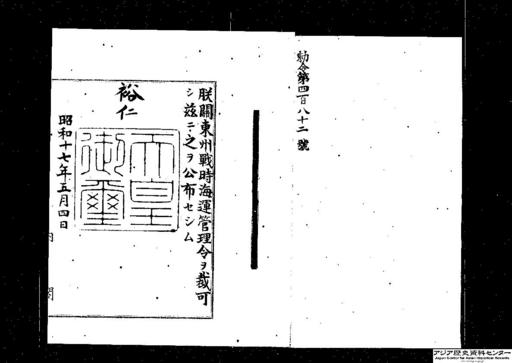 勅令第四百八十二號
朕關東州戰時海運管理令ヲ裁可
シ茲ニ之ヲ公布セシム
裕仁
天皇御璽
昭和十七年五月四日
内閣
アジア歴史資料センター
Japan Center for Asian Historical Records